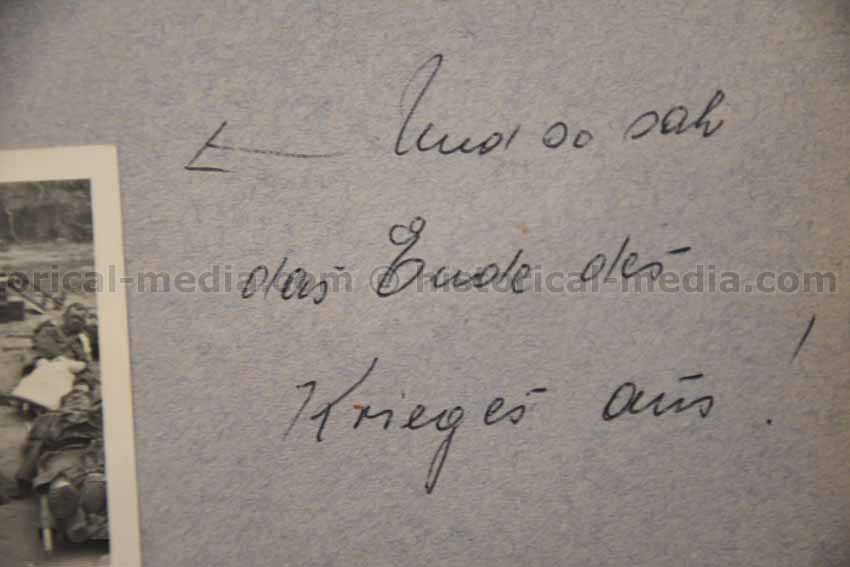 Und so sah
das Ende des
Krieges aus!
historical-media.com © historical-media.com